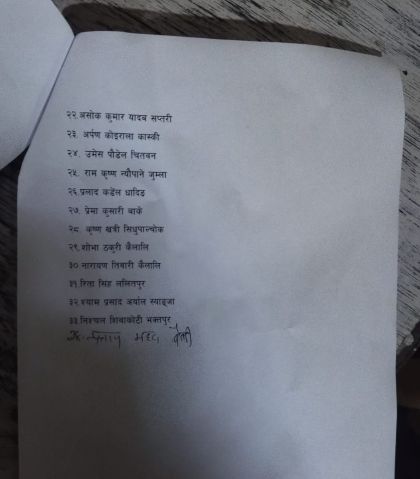 २२.असोक कुमार यादब सप्तरी
२३. अर्पण कोइराला कास्की
२४. उमेस पौडेल चितबन
२५. राम कृष्ण न्यौपाने जुम्ला
२६.प्रलाद कडेंल धादिङ
२७. प्रेमा कुसारी बाके
२८. कृष्ण खत्री सिधुपाल्चोक
२९.शोभा ठकुरी कैलालि
३०.नारायण तिवारी कैलालि
३१.रिता सिंह ललितपुर
३२.श्याम प्रसाद अर्याल स्याङ्जा
३३.निश्चल शिवाकोटी भक्तपुर